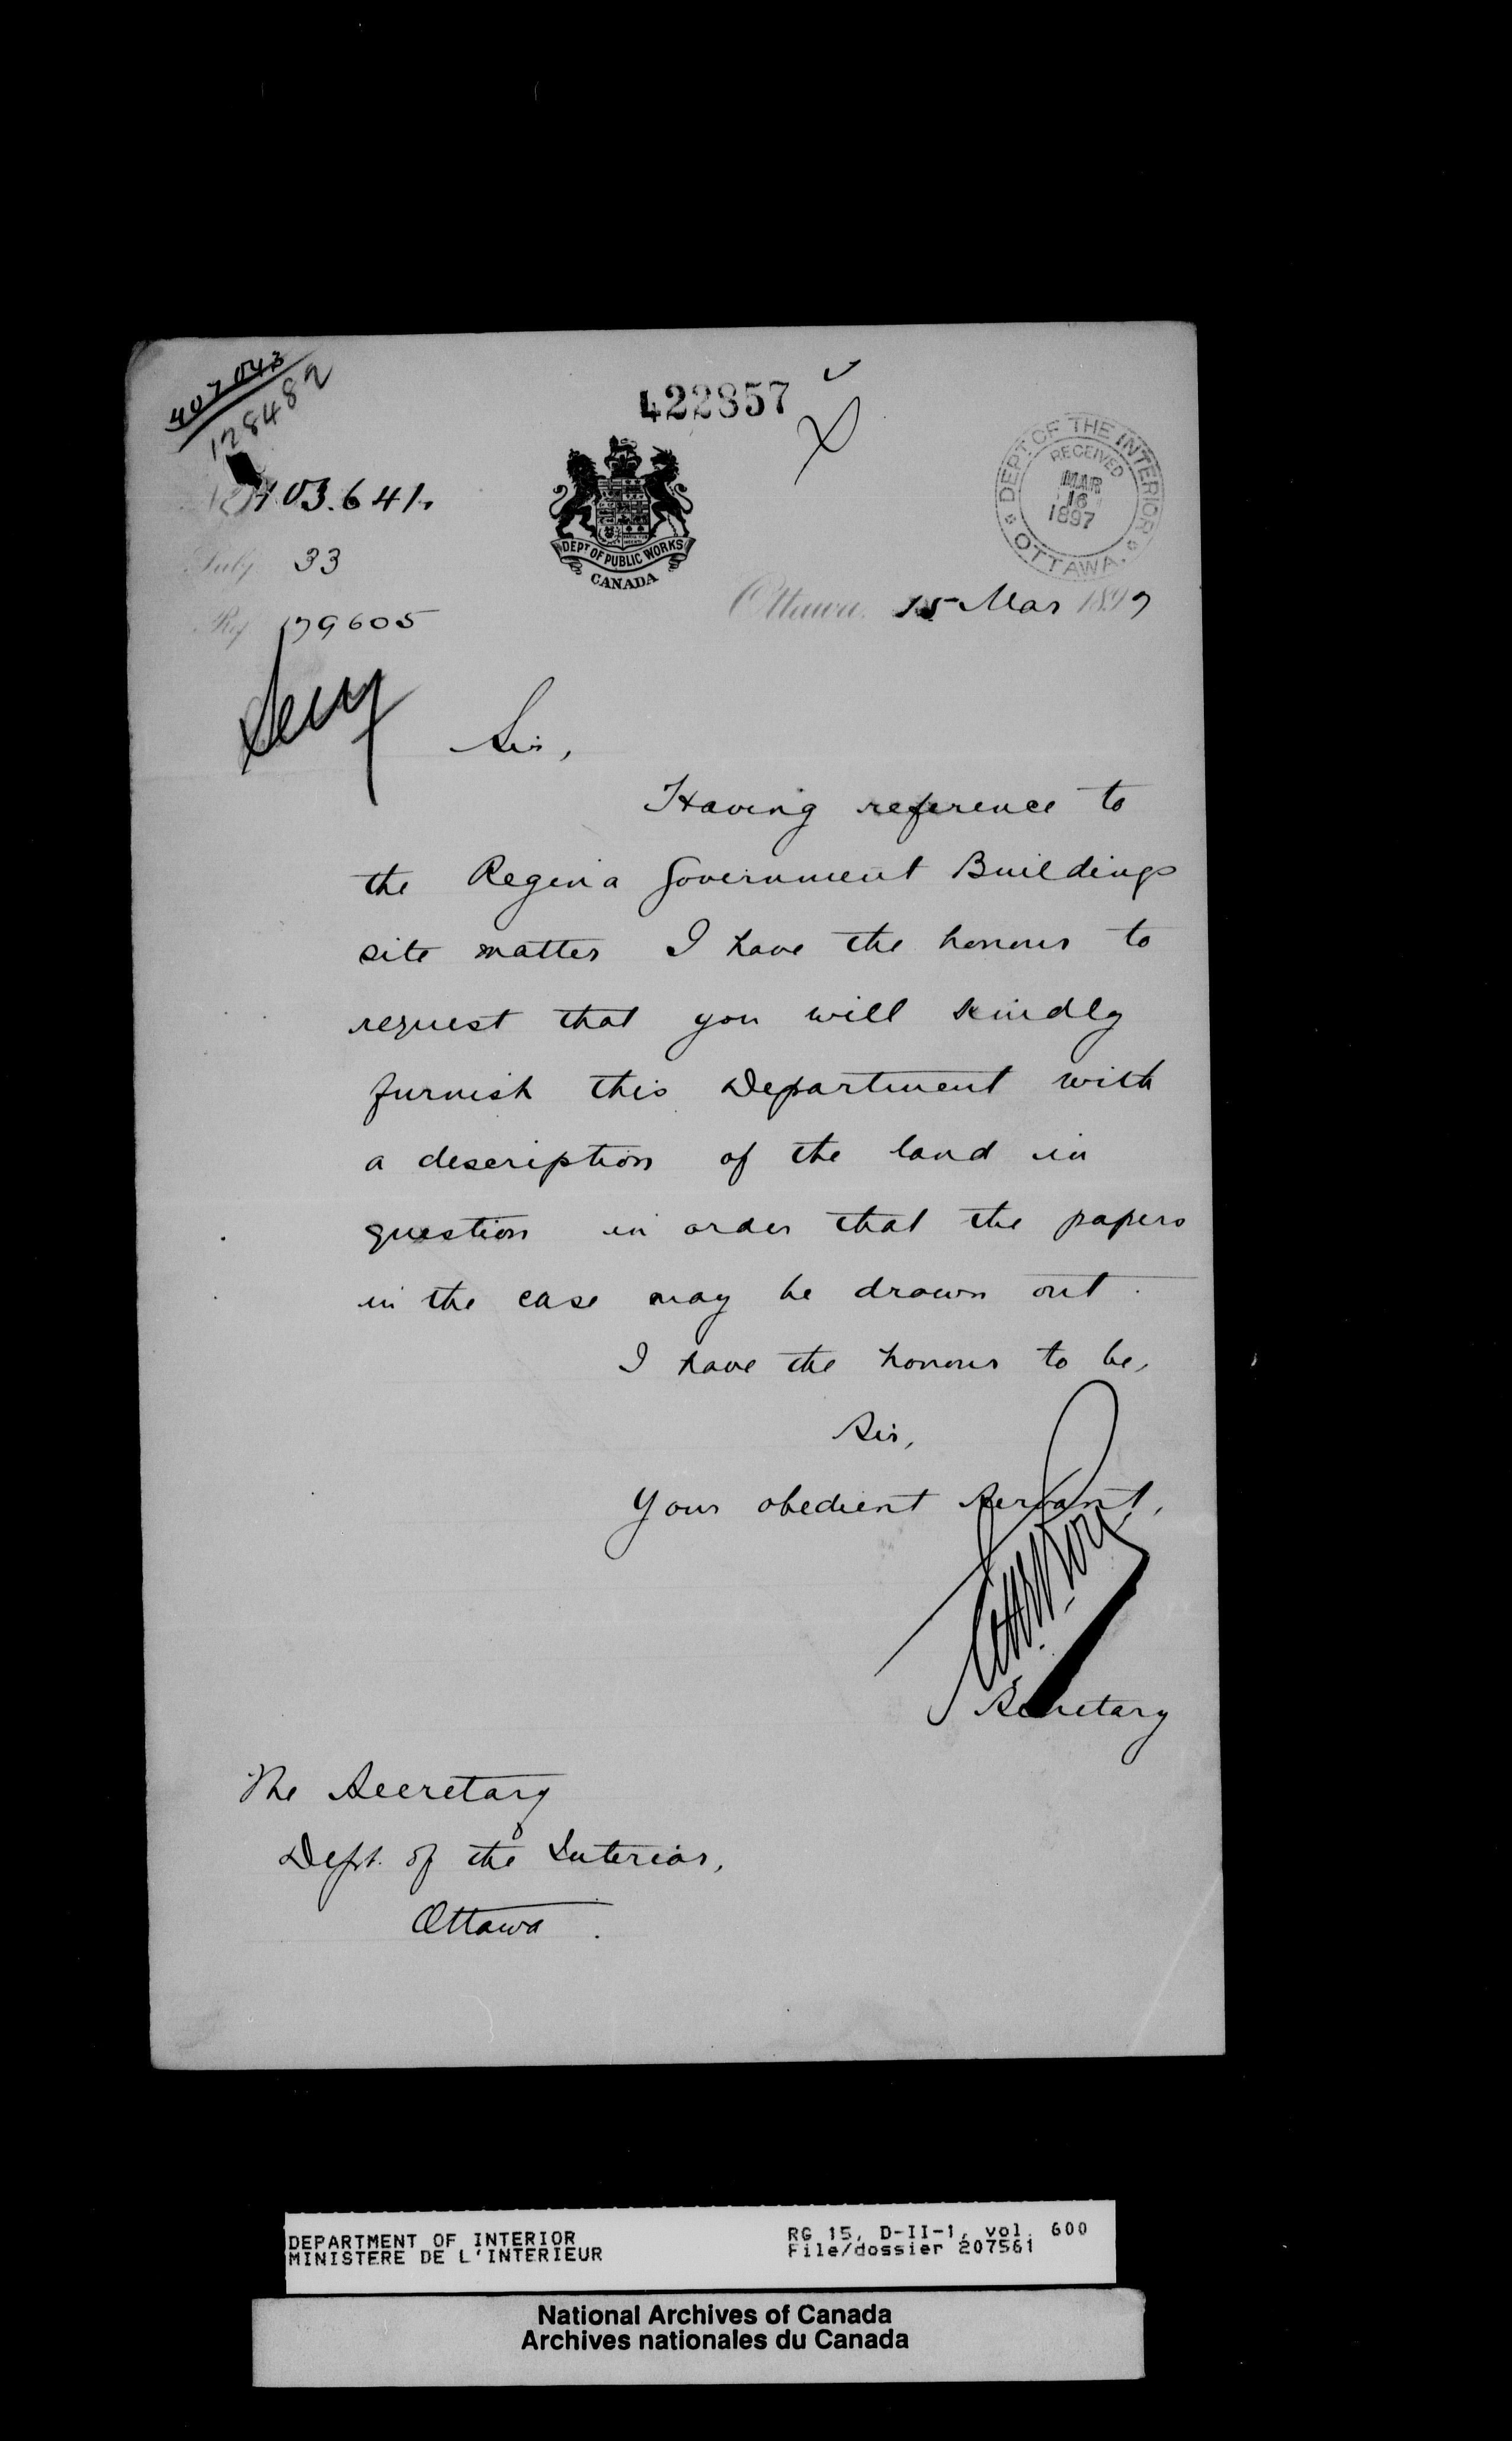 407043
128482
422857
103.641.
Subj. 33
Ref. 179605
DEPT. OF THE INTERIOR
RECEIVED
MAR
16
1897
OTTAWA.
DEPT OF PUBLIC WORKS
CANADA
Ottawa. 15 Mar 1897
Secy
Sir,
Having reference to
the Regina Government Buildings
site matter I have the honour to
request that you will kindly
furnish this Department with
a description of the land in
question in order that the papers
in the case may be drawn out.
I have the honour to be,
Sir,
Your obedient servant,
Secretary
The Secretary
Dept. of the Interior,
Ottawa.
DEPARTMENT OF INTERIOR
MINISTERE DE L'INTERIEUR
RG 15, D-II-1, vol. 600
File/dossier 207561
National Archives of Canada
Archives nationales du Canada